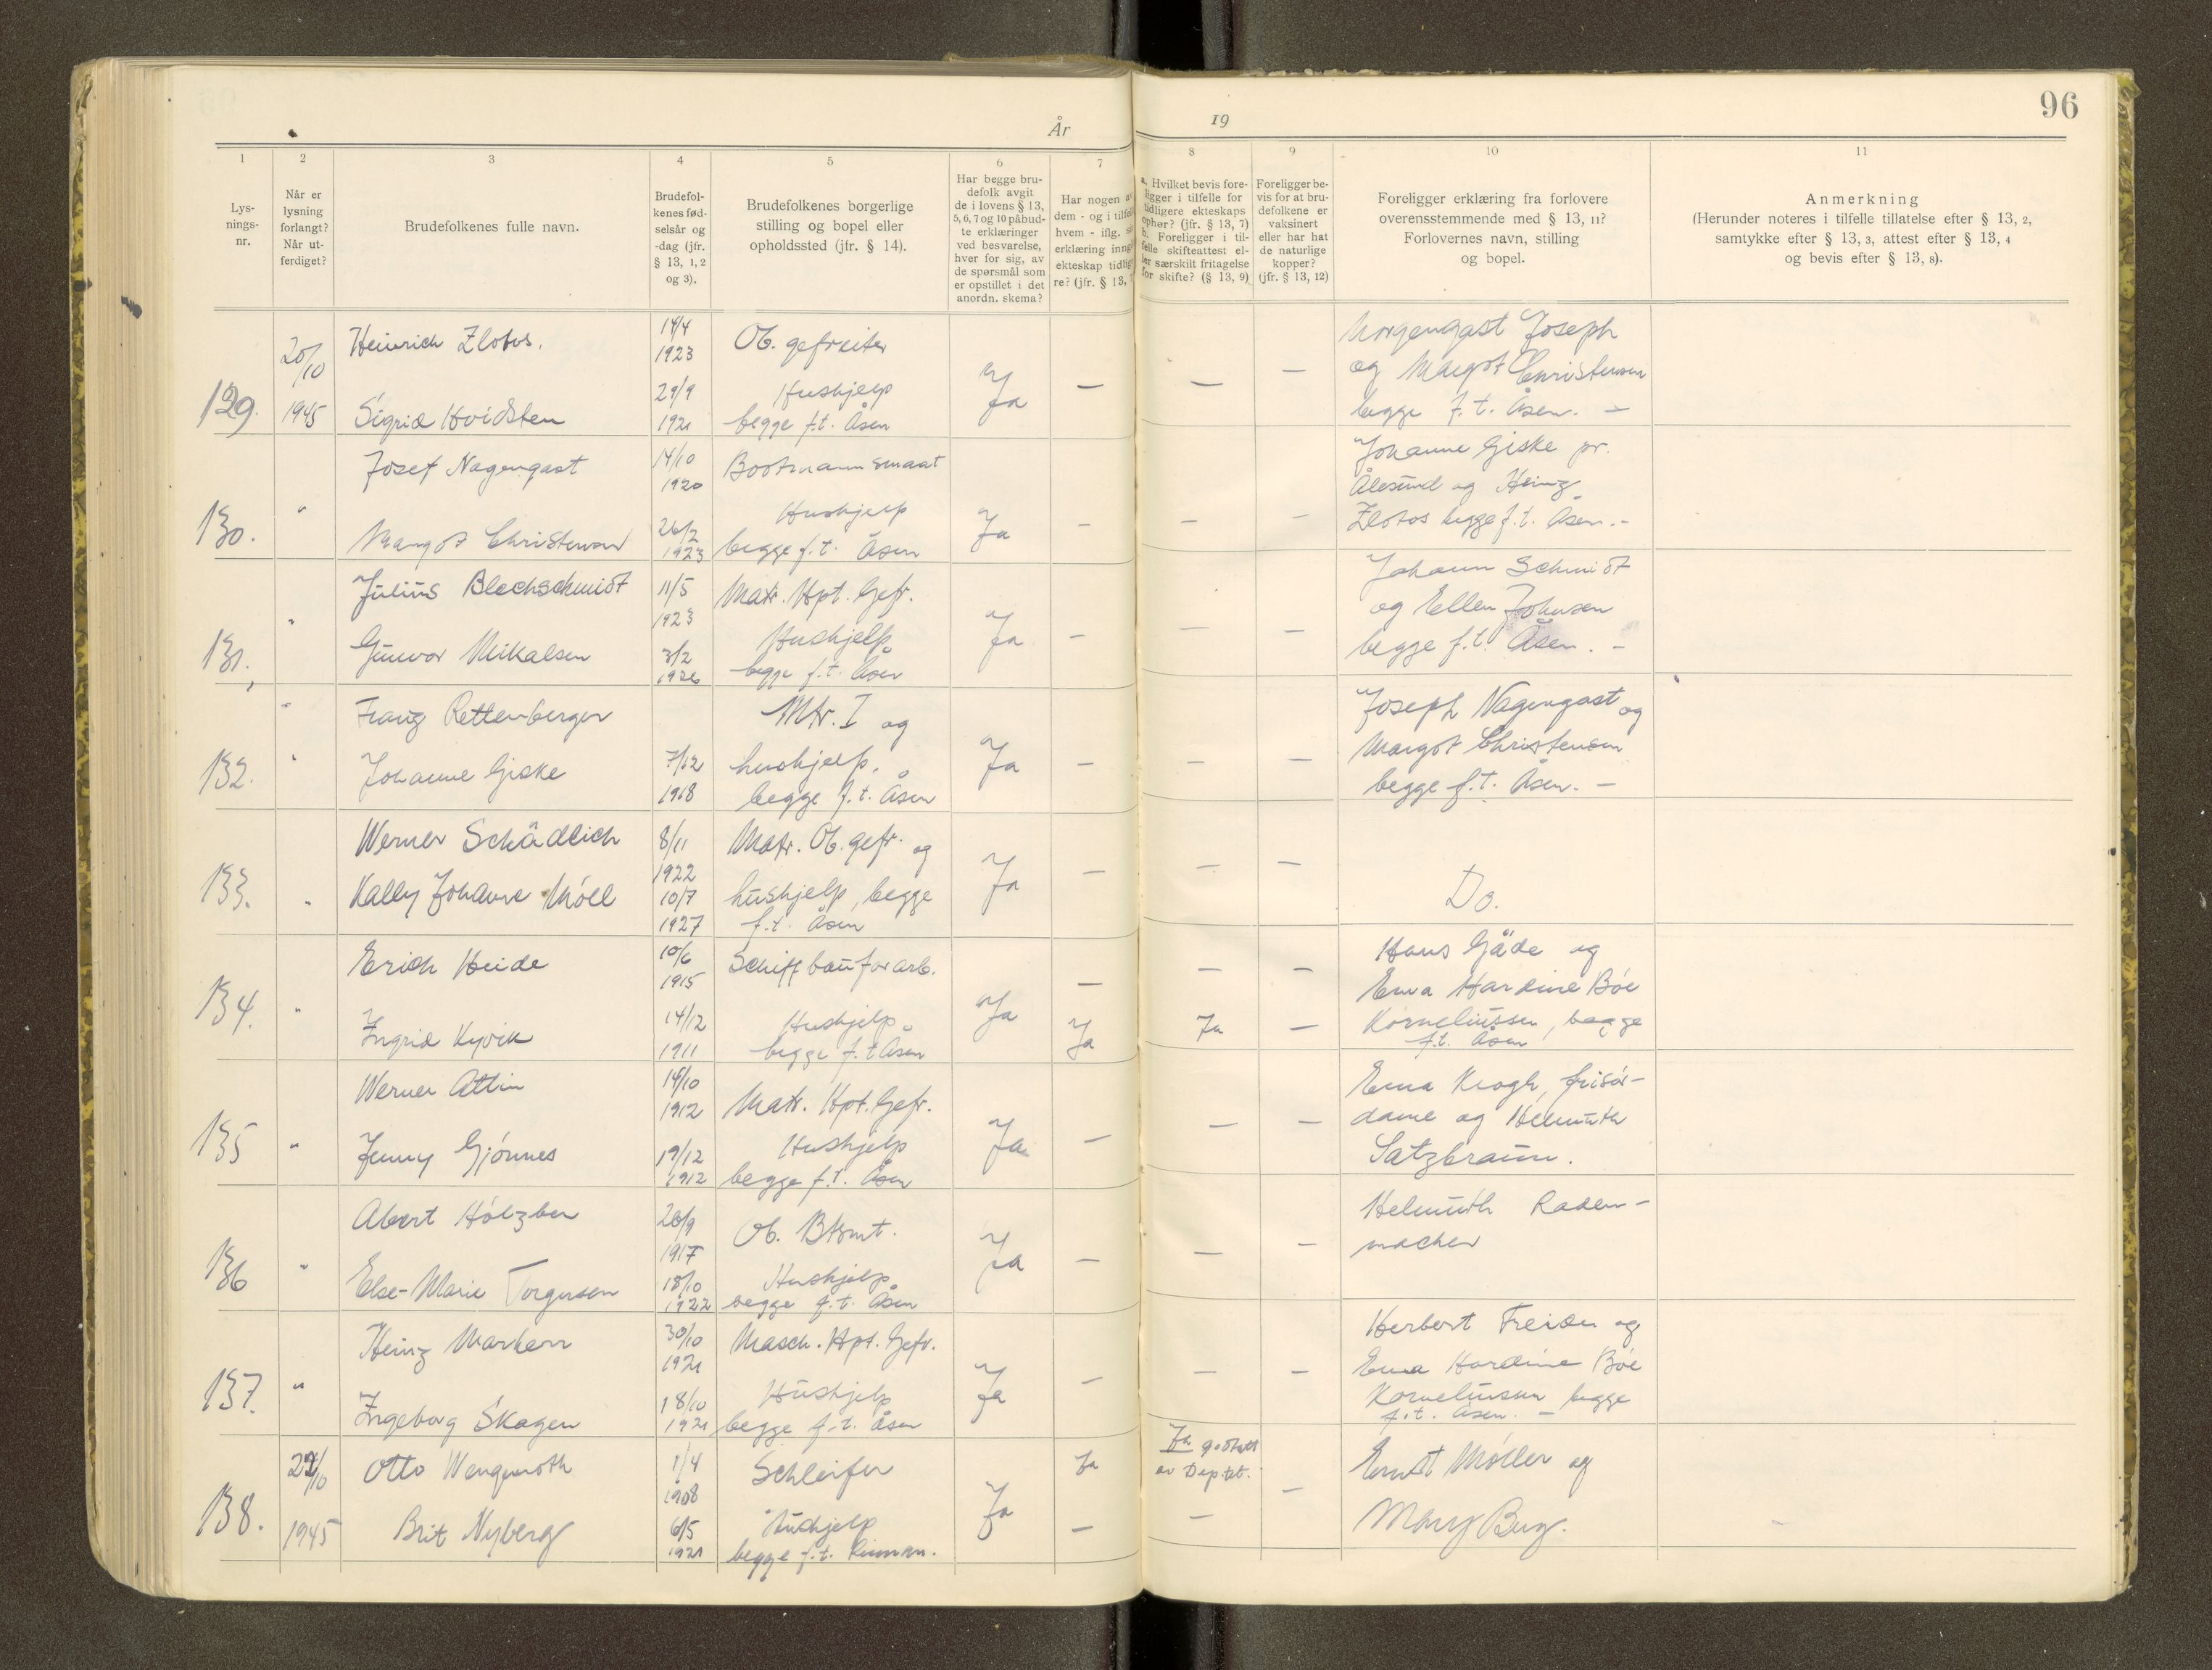 96
År 19
1 2 3 4 5 6 7 8 9 10 11
Lys-
nings-
nr.
Når er
lysning
forlangt?
Når ut-
ferdiget?
Brudefolkenes fulle navn.
Brudefol-
kenes fød-
selsår og
-dag (jfr.
§ 13, 1, 2
og 3).
Brudefolkenes borgerlige
stilling og bopel eller
opholdssted (jfr. § 14).
Har begge bru-
defolk avgit
de i lovens § 13,
5, 6, 7 og 10 påbud-
te erklæringer
ved besvarelse,
hver for sig, av
de spørsmål som
er opstillet i det
anordn. skema?
Har nogen a
dem - og i tilfel
hvem - iflg. s
erklæring inng
ekteskap tidlig
re? (jfr. § 13,
a. Hvilket bevis fore-
ligger i tilfelle for
tidligere ekteskaps
ophør? (jfr. § 13, 7)
b. Foreligger i til-
felle skifteattest el-
ler særskilt fritagelse
for skifte? (§ 13, 9)
Foreligger be-
vis for at bru-
defolkene er
vaksinert
eller har hat
de naturlige
kopper?
(jfr. § 13, 12)
Foreligger erklæring fra forlovere
overensstemmende med § 13, 11?
Forlovernes navn, stilling
og bopel.
Anmerkning
(Herunder noteres i tilfelle tillatelse efter § 13, 2,
samtykke efter § 13, 3, attest efter § 13, 4
og bevis efter § 13, 8).
129.
20/10
1945
Heinrich Zlotos.
Sigrid Hvidsten
14/4
1923
29/9
1921
Ob. gefreiter
Hushjelp
begge f.t. Åsen
Ja — — —
Morgengast Joseph
og Margot Christensen
begge f.t. Åsen. —
130.
"
Josef Nagengast
Margot Christensen
14/10
1920
26/2
1923
Bootsmannsmaat
Hushjelp
begge f.t. Åsen
Ja - - -
Johanne Giske pr.
Ålesund og Heinz
Zlotos begge f.t. Åsen.-
131.
"
Julius Blechschmidt
Gunvor Mikalsen
11/5
1923
3/2
1926
Matr. Hpt. Gefr.
Hushjelp
begge f.t. Åsen
Ja - - -
Johann Schmidt
og Ellen Johnsen
begge f.t. Åsen. -
132.
"
"
Franz Rettenberger
Johanne Giske
7/12
1918
Mtr. I og
hushjelp.
begge f.t. Åsen
Ja - - -
Joseph Nagengast og
Margot Christensen
begge f.t. Åsen. -
133.
"
Werner Schädlich
Kally Johanne Móll
8/11
1922
10/7
1927
Matr. Ob. gefr. og
hushjelp, begge
f.t. Åsen
Ja - - -
Do.
134.
"
Erich Heide
Ingrid Kyvik
10/6
1915
14/12
1911
Schiffbauforarb.
Hushjelp
begge f.t Åsen
Ja
—
Ja
—
Ja
—
—
Hans Gäde og
Erna Hardine Bóe
Korneliussen, begge
f.t. Åsen
135
"
Werner Attin
Jenny Gjónnes
14/10
1912
19/12
1912
Matr. Hpt. Gefr.
Hushjelp
begge f.t. Åsen
Ja - - -
Erna Krogh, frisór-
dame og Helmuth
Satzbraun.
136
"
Abert Hólzber
Else-Marie Torgersen
20/9
1917
18/10
1922
Ob. Btsmt.
Hushjelp
begge f.t. Åsen
Ja - - -
Helmuth Radem-
macher
137.
"
Heinz Markerr
Ingeborg Skagen
30/10
1921
18/10
1921
Masch. Hpt. Gefr.
Hushjelp
begge f.t. Åsen
Ja - - -
Herbert Freiden og
Erna Hardine Bóe
Korneliussen begge
f.t. Åsen. —
138.
1945
Otto Wengenroth
Brit Nyberg
1/4
1908
6/5
1921
Schleifer
Hushjelp
begge f.t.
Ja
Ja
—
Ja godtatt
av Deptet.
—
—
Ernst Móller og
Mary Bug.